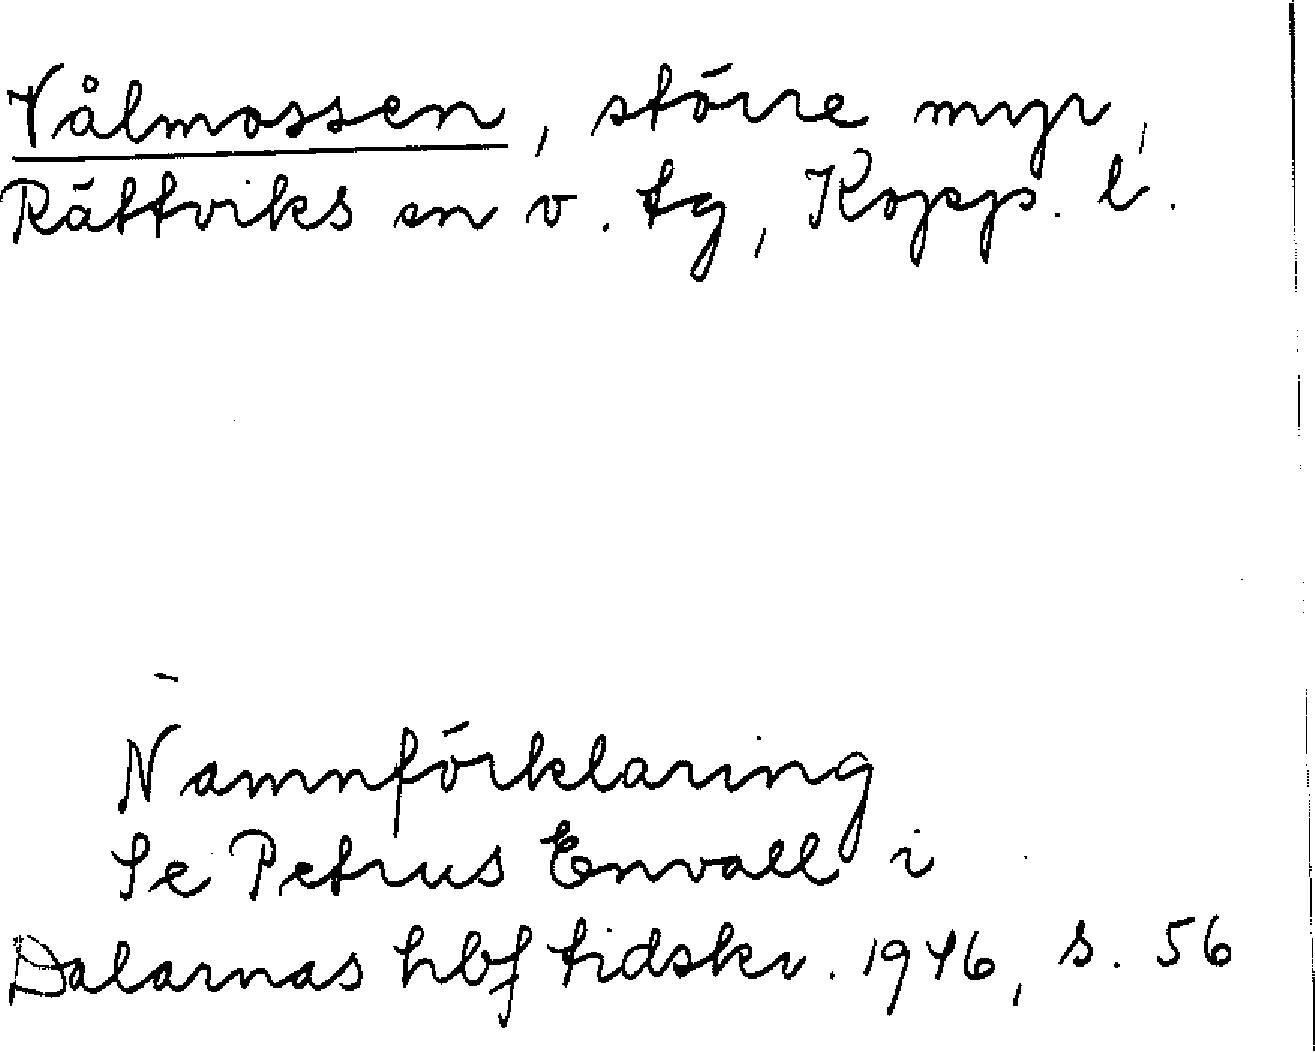 Vålmossen, större myr,
Rättviks sn v. tg, Kopp. l.
Namnförklaring
Se Petrus Envall i
Dalarnas hbf tidskr. 1946, s. 56